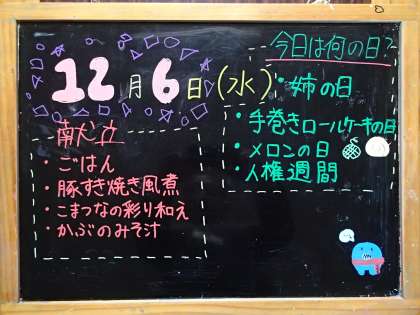 12月6日(水)
今日は何の日?
・姉の日
・手巻きロールケーキの日
・メロンの日
・人権週間
南大立
・ごはん
・豚すき焼き風煮
・こまつなの彩り和え
・かぶのみそ汁